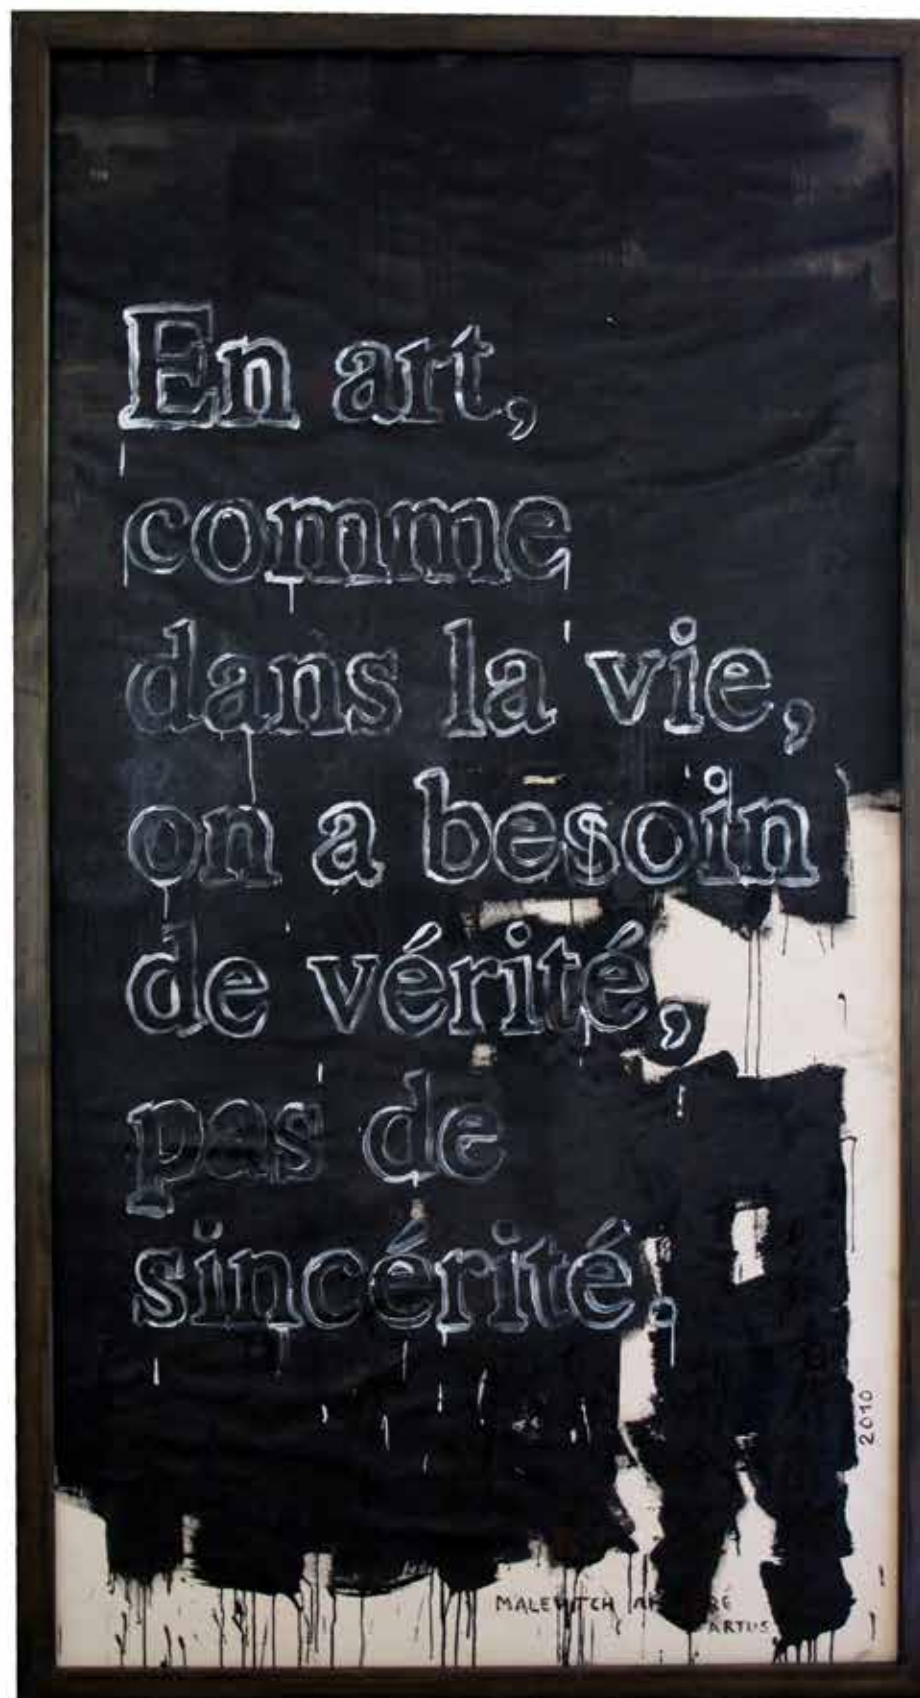 En art,
comme
dans la vie,
on a besoin
de vérité,
pas de
sincérité.
2010
MALEVITCH
ARTUS